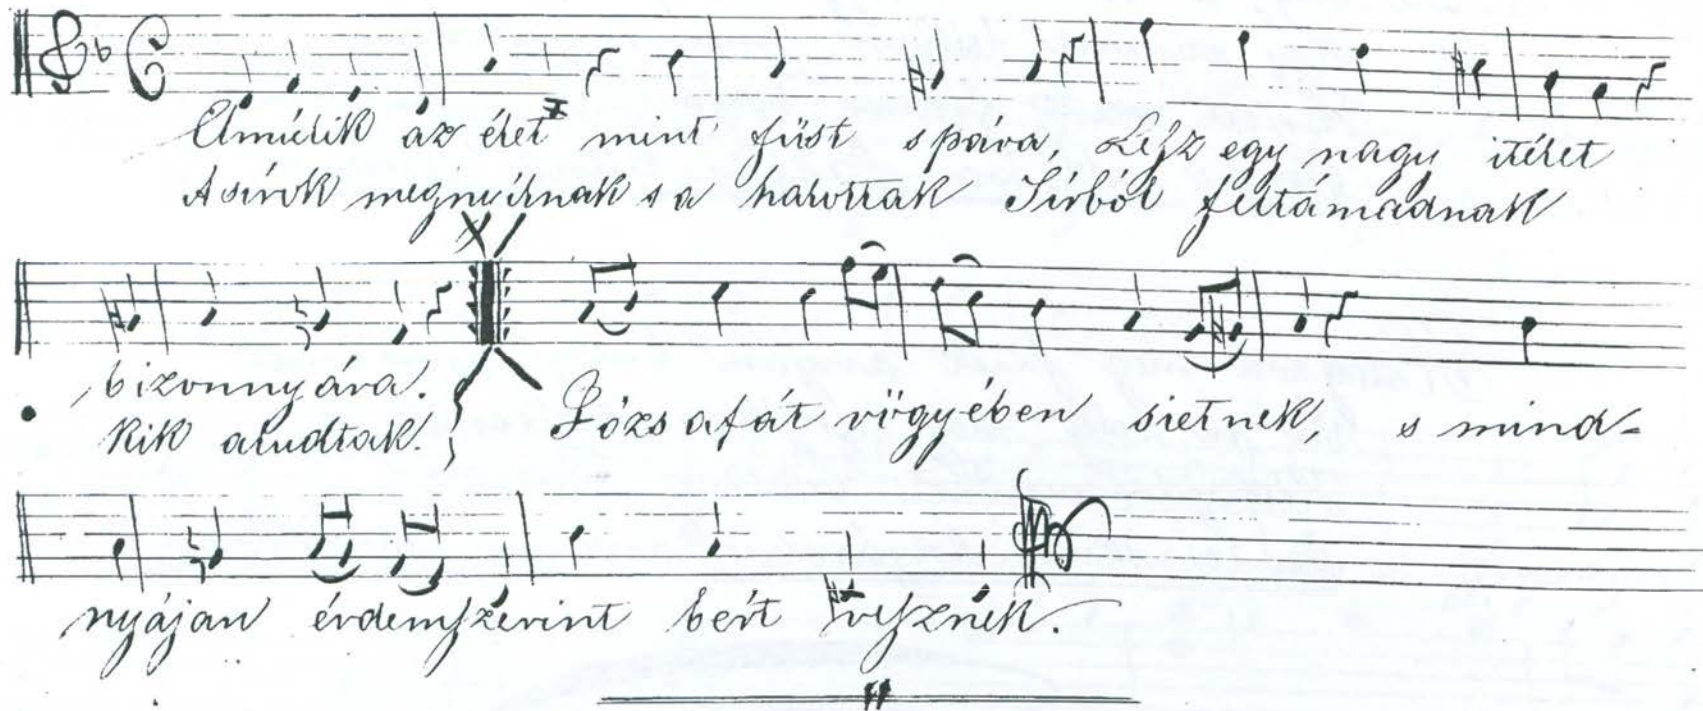 Elmúlik az élet mint füst s pára, Lészz egy nagy itélet
A sirok megnyilnak s a halottak Sirból feltámadnak
bizonnyára.
kik aludtak.
Józsafát völgyében sietnek, s mind-
nyájan érdemszerint bért vesznek.